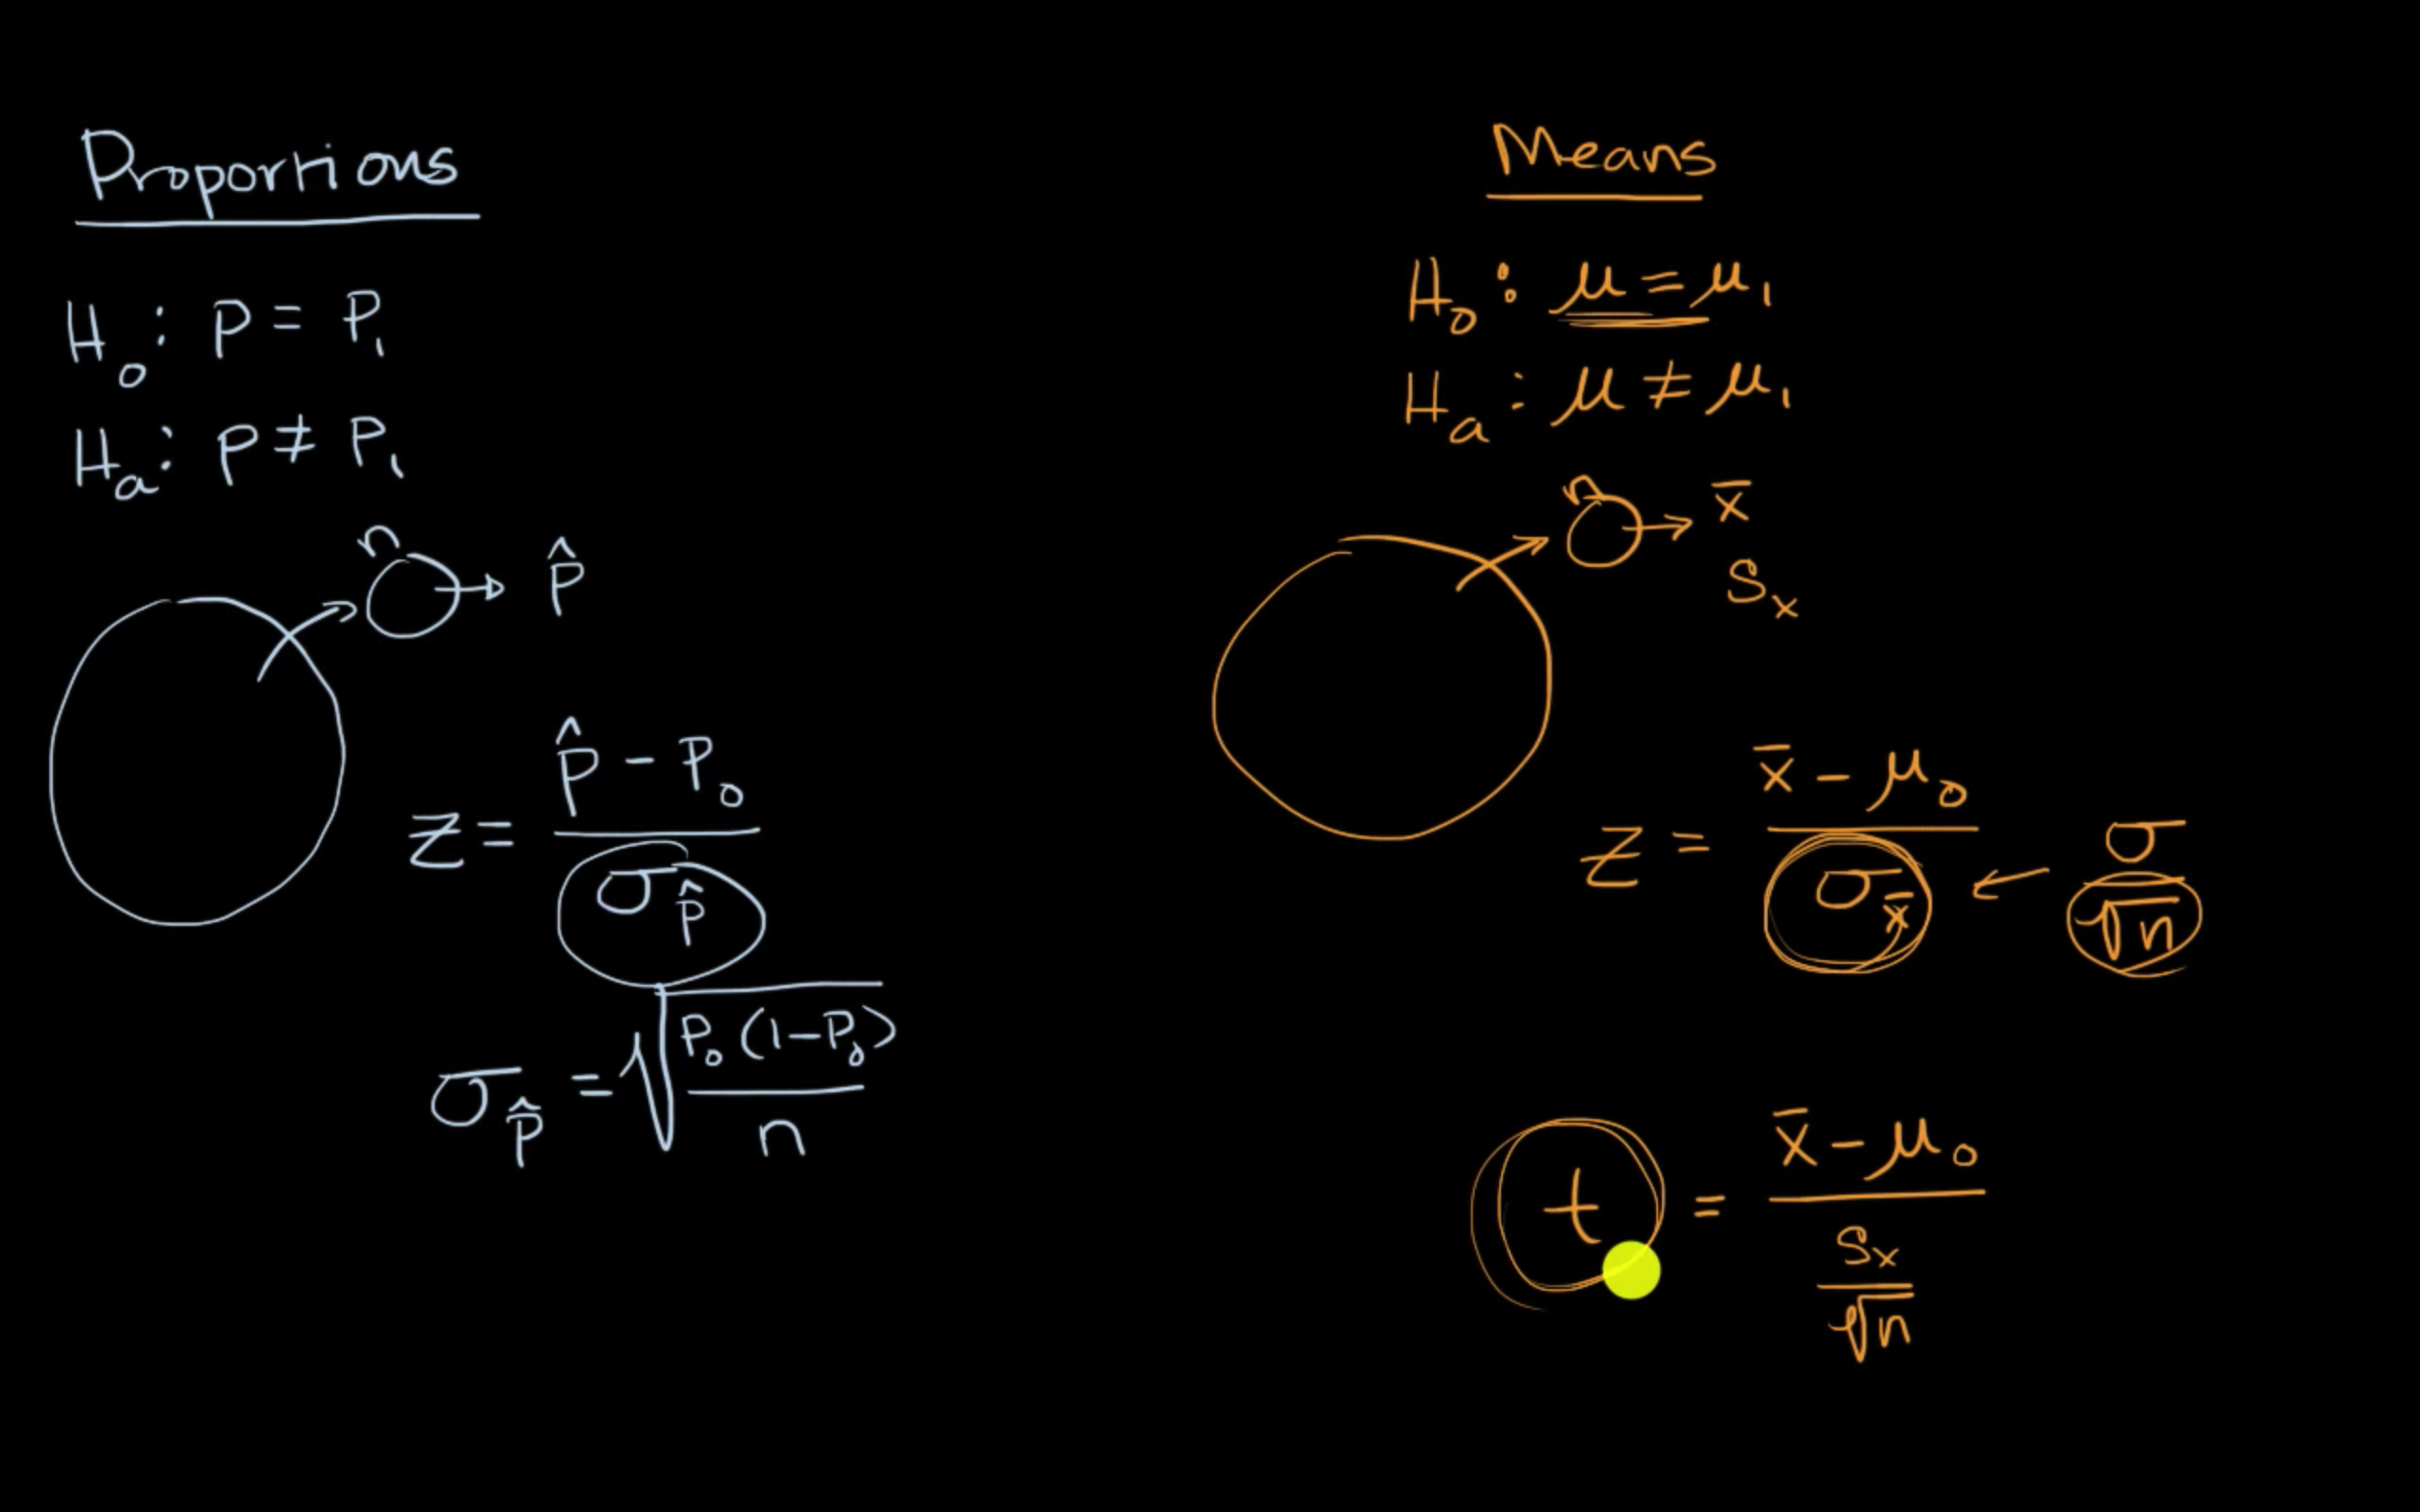 Proportions
H₀: p = p₁
Hₐ: p ≠ p₁
n
p̂
z = (p̂ - p₀) / σ_p̂
σ_p̂ = √(p₀(1-p₀) / n)
Means
H₀: μ = μ₁
Hₐ: μ ≠ μ₁
n
x̄
sₓ
z = (x̄ - μ₀) / σ_x̄ ← σ / √n
t = (x̄ - μ₀) / (sₓ / √n)